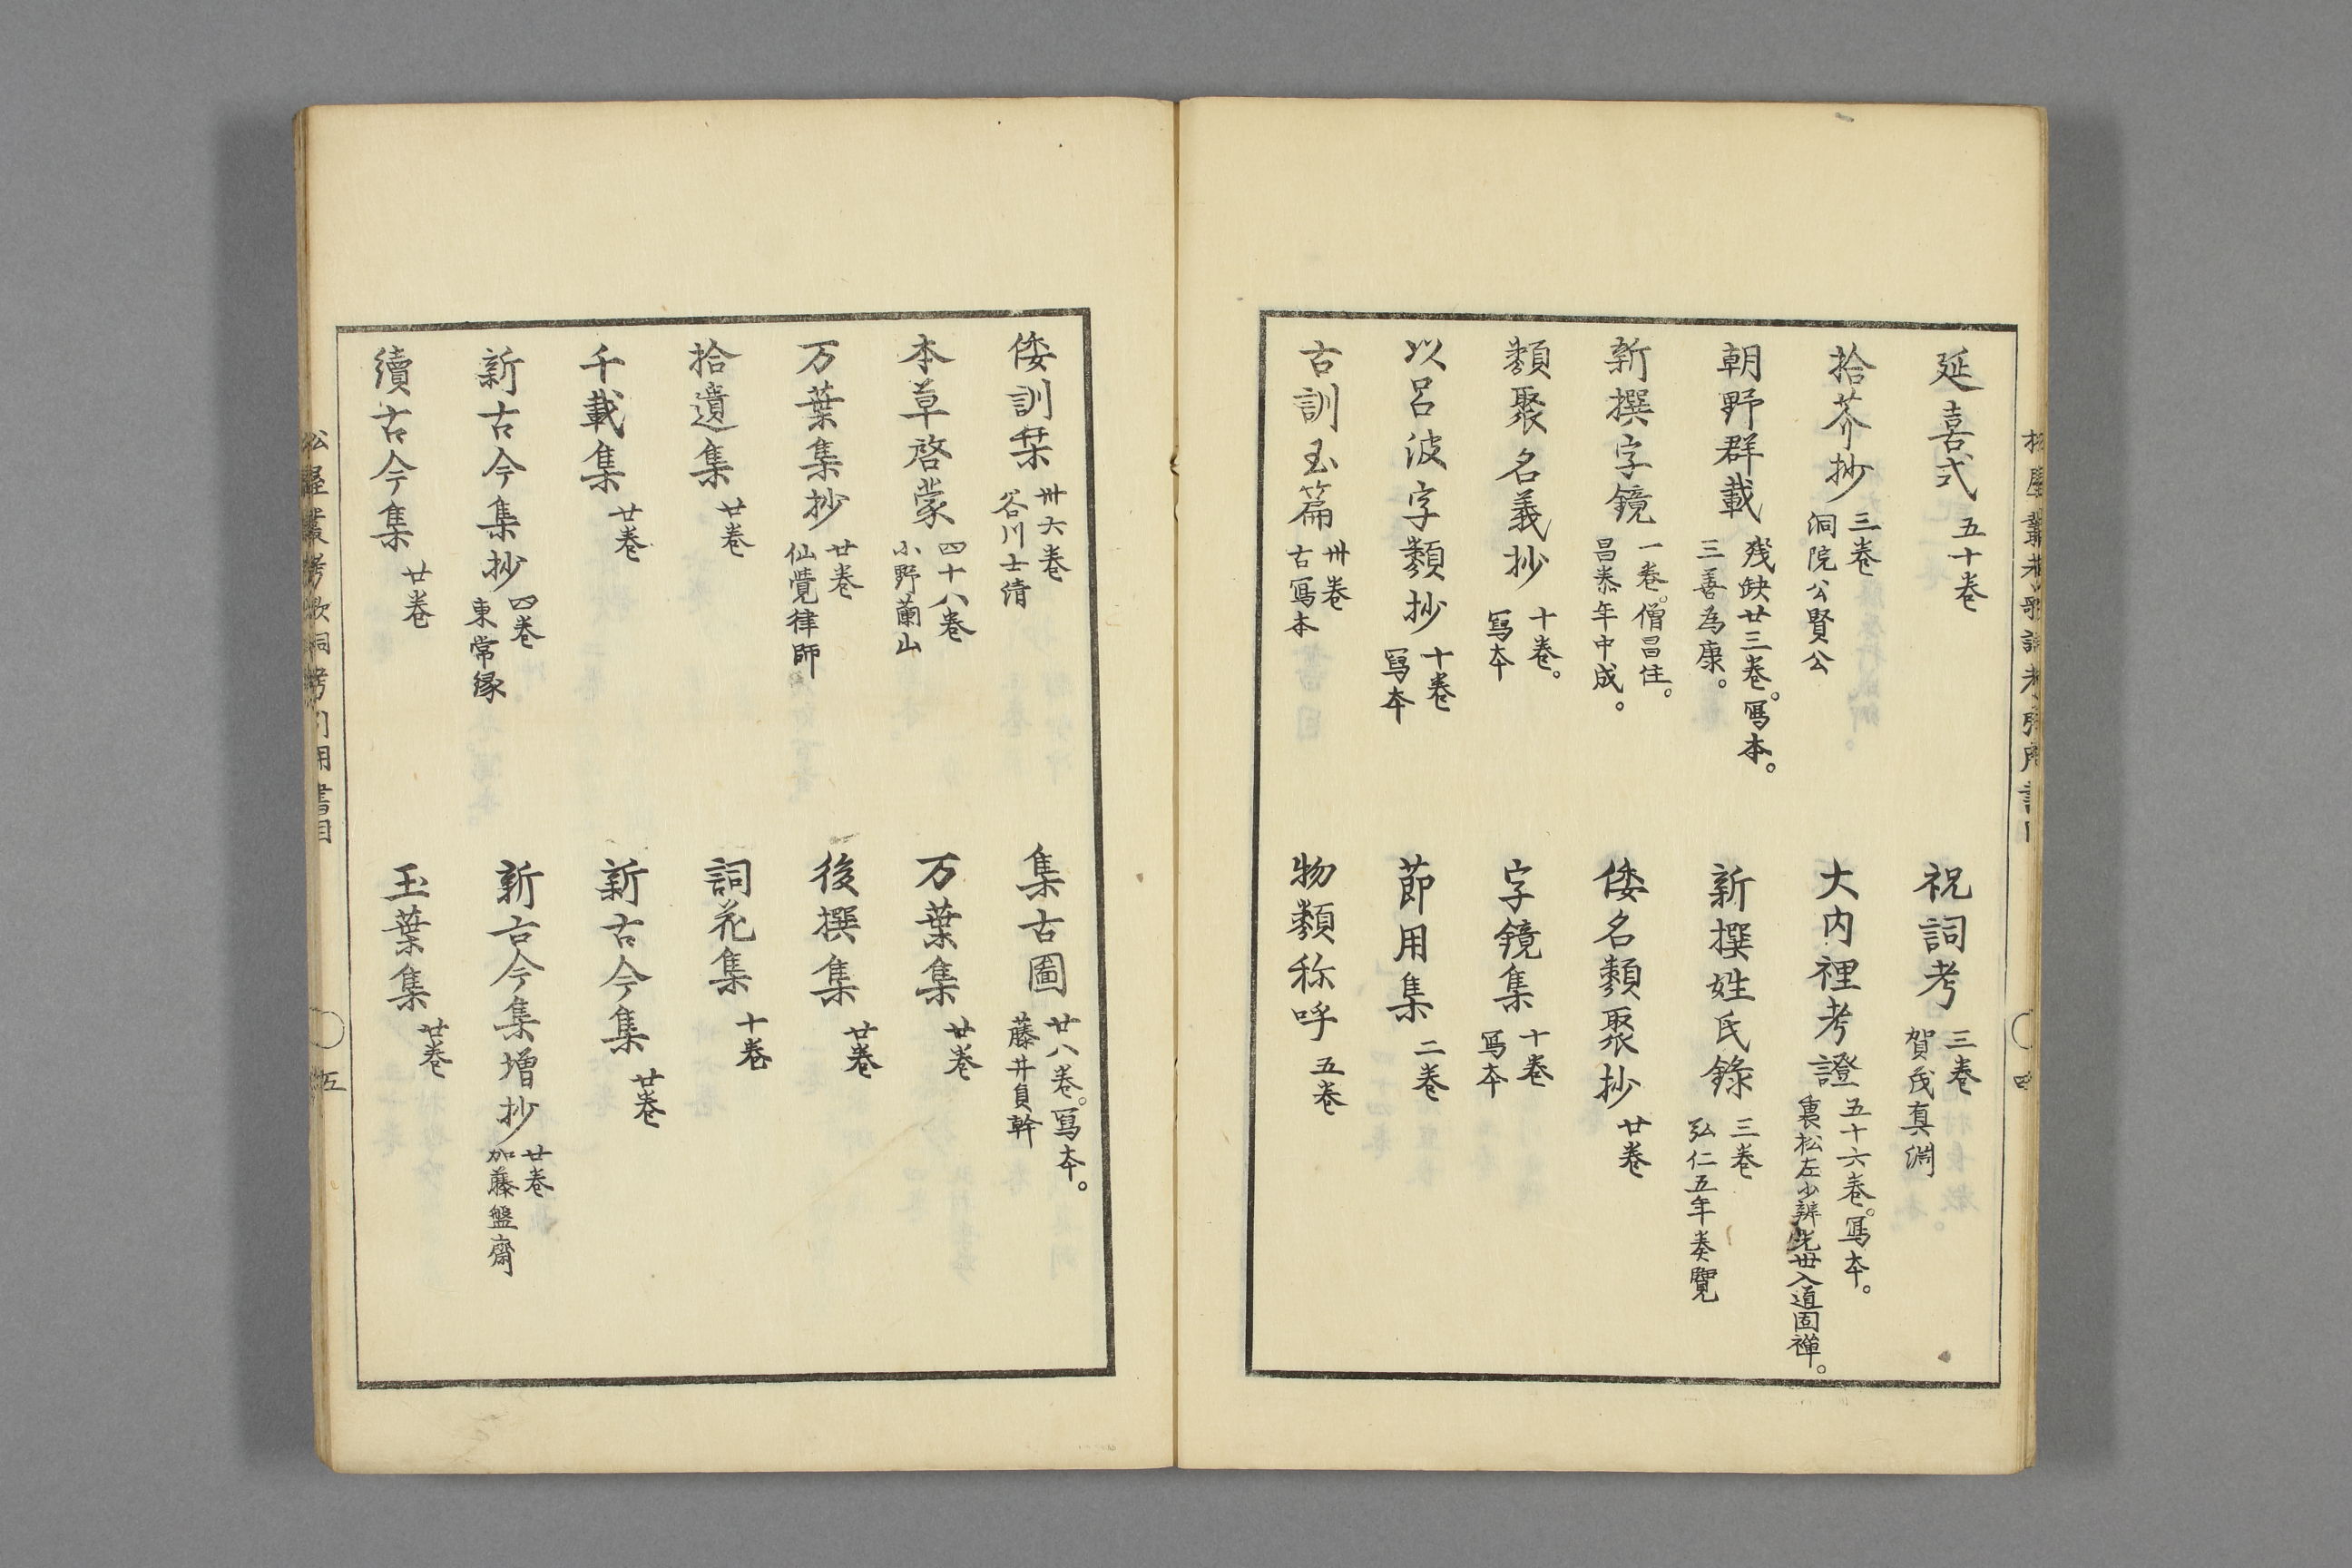 延喜式 五十卷
祝詞考 三卷 賀茂真淵
拾芥抄 三卷 洞院公賢公
大内裡考證 五十六卷。寫本。 裏松左少辨光世入道固禅。
朝野群載 残缺廿三卷。寫本。 三善為康。
新撰姓氏錄 三卷 弘仁五年奏覽
新撰字鏡 一卷。僧昌住。 昌泰年中成。
倭名類聚抄 廿卷
類聚名義抄 十卷。 寫本
字鏡集 十卷 寫本
以呂波字類抄 十卷 寫本
節用集 二卷
古訓玉篇 卅卷 古寫本
物類称呼 五卷
倭訓栞 卅六卷 谷川士清
集古圖 廿八卷。寫本。 藤井貞幹
本草啓蒙 四十八卷 小野蘭山
万葉集 廿卷
万葉集抄 廿卷 仙覺律師
後撰集 廿卷
拾遺集 廿卷
詞花集 十卷
千載集 廿卷
新古今集 廿卷
新古今集抄 四卷 東常縁
新古今集増抄 廿卷 加藤盤齋
續古今集 廿卷
玉葉集 廿卷
松屋叢考歌詞考引用書目 五